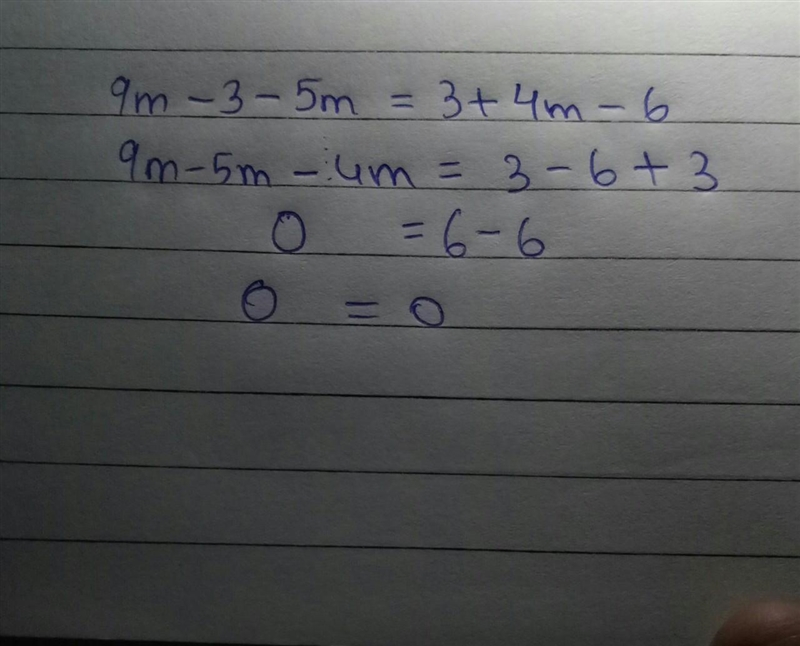 9m - 3 - 5m = 3 + 4m - 6
9m - 5m - 4m = 3 - 6 + 3
0 = 6 - 6
0 = 0